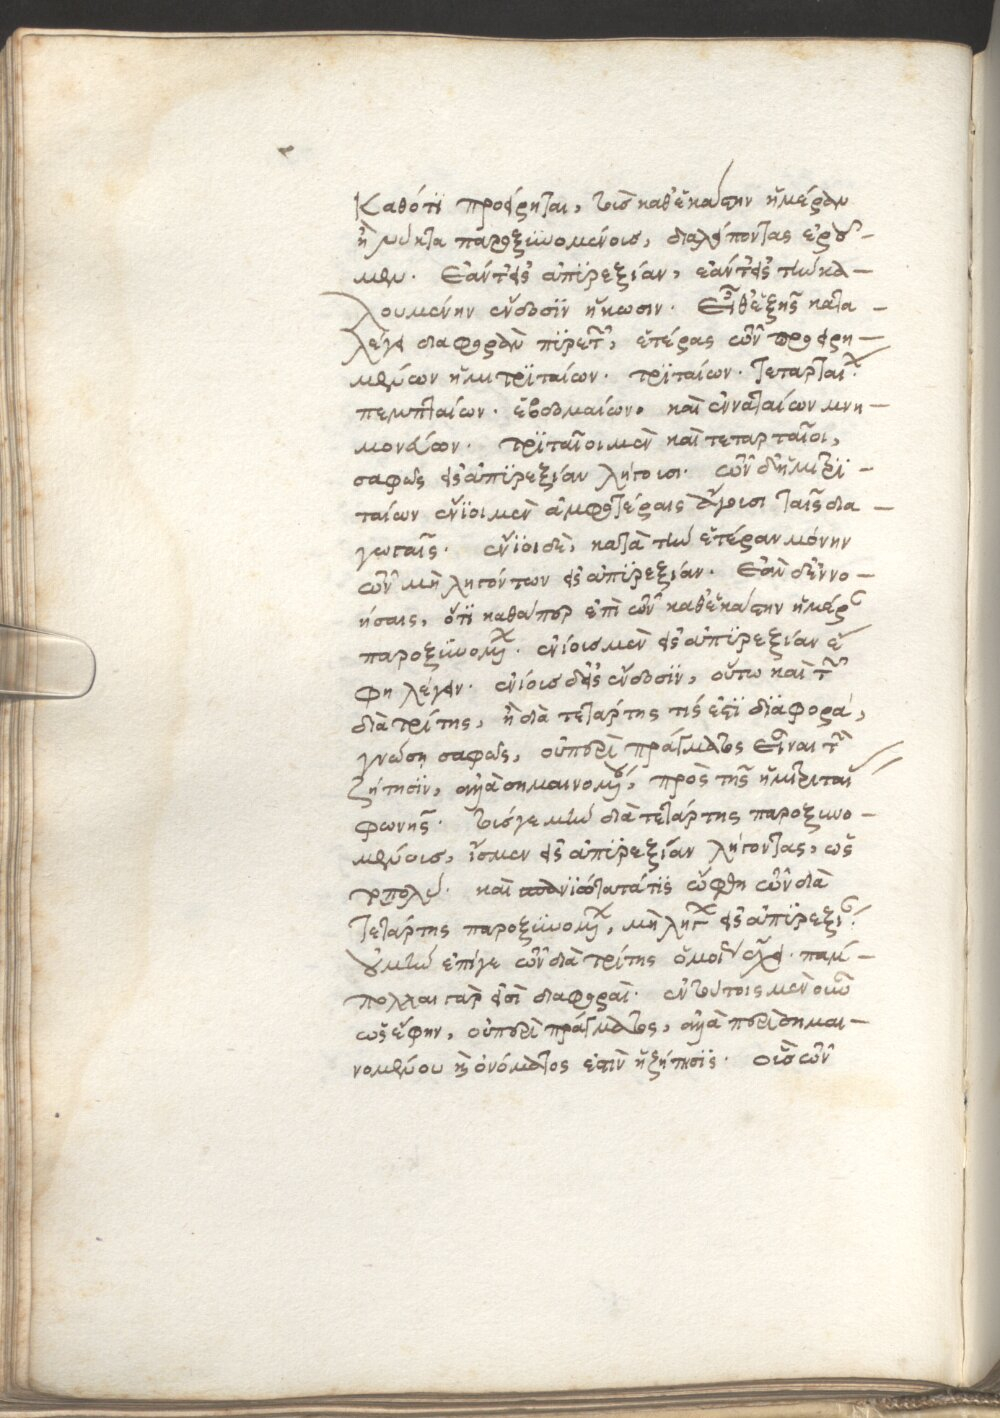 καθότι προείρηται, τοῖς καθ' ἑκάστην ἡμέραν
ἢ νύκτα παροξυνομένοις, διαλείποντας ἐροῦ-
μεν. ἐάν τ' εἰς ἀπυρεξίαν, ἐάν τ' εἰς τὴν κα-
λουμένην ἔνδοσιν ἥκωσιν. εἶθ' ἑξῆς κατα-
λέγει διαφορὰν πυρετῶν, ἑτέρας τῶν προειρη-
μένων ἡμιτριταίων. τριταίων. τεταρταίων.
πεμπταίων. ἑβδομαίων. καὶ ἐνναταίων μνη-
μονεύων. τριταῖοι μὲν καὶ τεταρταῖοι,
σαφῶς εἰς ἀπυρεξίαν λήγουσι. τῶν δ' ἡμιτρι-
ταίων ἔνιοι μὲν ἀμφοτέραις ταῖς δια
γνώσῃ. ἔνιοι δὲ, κατὰ τὴν ἑτέραν μόνην
τῶν μὴ ληγόντων εἰς ἀπυρεξίαν. ἐὰν δ' ἐννο-
ήσαις, ὅτι καθάπερ ἐπὶ τῶν καθ' ἑκάστην ἡμέραν
παροξυνομένων. ἐνίοις μὲν εἰς ἀπυρεξίαν ἔ
φη λήγειν. ἐνίοις δ' εἰς ἔνδοσιν, οὕτω καὶ τῶν
διὰ τρίτης, ἢ διὰ τετάρτης τίς ἐστι διαφορά,
γνώσῃ σαφῶς, οὐ περὶ πράγματος εἶναι τὴν
ζήτησιν, ἀλλὰ σημαινομένου, πρὸς τῆς ἡμιτριταίου
φωνῆς. τούς γε μὴν διὰ τετάρτης παροξυνο-
μένους, ἴσμεν εἰς ἀπυρεξίαν λήγοντας, ὡς
τὸ πολύ. καὶ τις ὤφθη τῶν διὰ
τετάρτης παροξυνομένων, μὴ λήγων εἰς ἀπυρεξίαν.
οὐ μὴν ἐπί γε τῶν διὰ τρίτης ὁμοίως ἔχει. πάμ-
πολλαι γάρ εἰσι διαφοραί. ἐν τούτοις μὲν οὖν
ὡς ἔφην, οὐ περὶ πράγματος, ἀλλὰ περὶ σημαι-
νομένου ἢ ὀνόματος ἐστὶν ἡ ζήτησις. οἷς τῶν